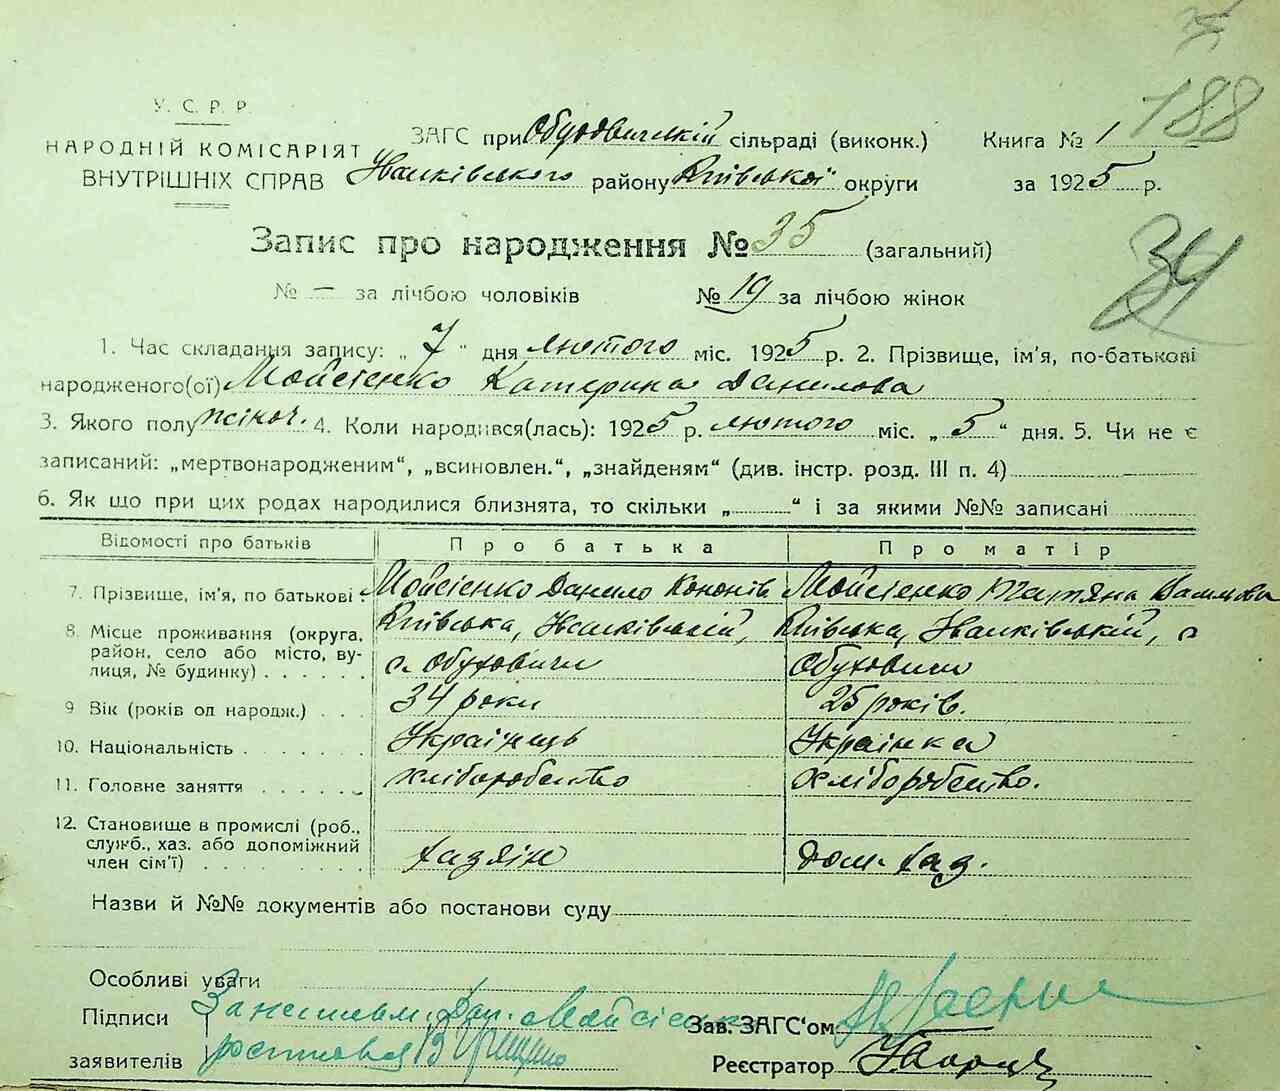 188
У. С. Р. Р.
НАРОДНІЙ КОМІСАРІЯТ
ВНУТРІШНІХ СПРАВ
ЗАГС при Обуховичській сільраді (виконк.) Книга № 1
Іванківського району Київської округи за 1925 р.
Запис про народження № 35 (загальний)
34
№ — за лічбою чоловіків № 19 за лічбою жінок
1. Час складання запису: „ 7 " дня лютого міс. 1925 р. 2. Прізвище, ім'я, по-батькові
народженого(ої) Мойсієнко Катерина Данилова
3. Якого полу жіноч. 4. Коли народився(лась): 1925 р. лютого міс. „ 5 " дня. 5. Чи не є
записаний: „мертвонародженим", „всиновлен.", „знайденям" (див. інстр. розд. III п. 4)
6. Як що при цих родах народилися близнята, то скільки „ " і за якими №№ записані
Відомості про батьків Про батька Про матір
7. Прізвище, ім'я, по батькові. Мойсієнко Данило Кононів Мойсієнко Татяна
8. Місце проживання (округа, Київська, Іванківській, Київська, Іванківській, с
район, село або місто, ву-
лиця, № будинку) с. Обуховичи Обуховичи
9 Вік (років од народж.) 34 роки 25 років.
10. Національність Українець Українка
11. Головне заняття хліборобство хліборобство.
12. Становище в промислі (роб.,
служб., хаз. або допоміжний
член сім'ї) хазяін дом. хаз.
Назви й №№ документів або постанови суду
Особливі уваги
Підписи Мойсієнко Зав. ЗАГС'ом
заявителів Реєстратор